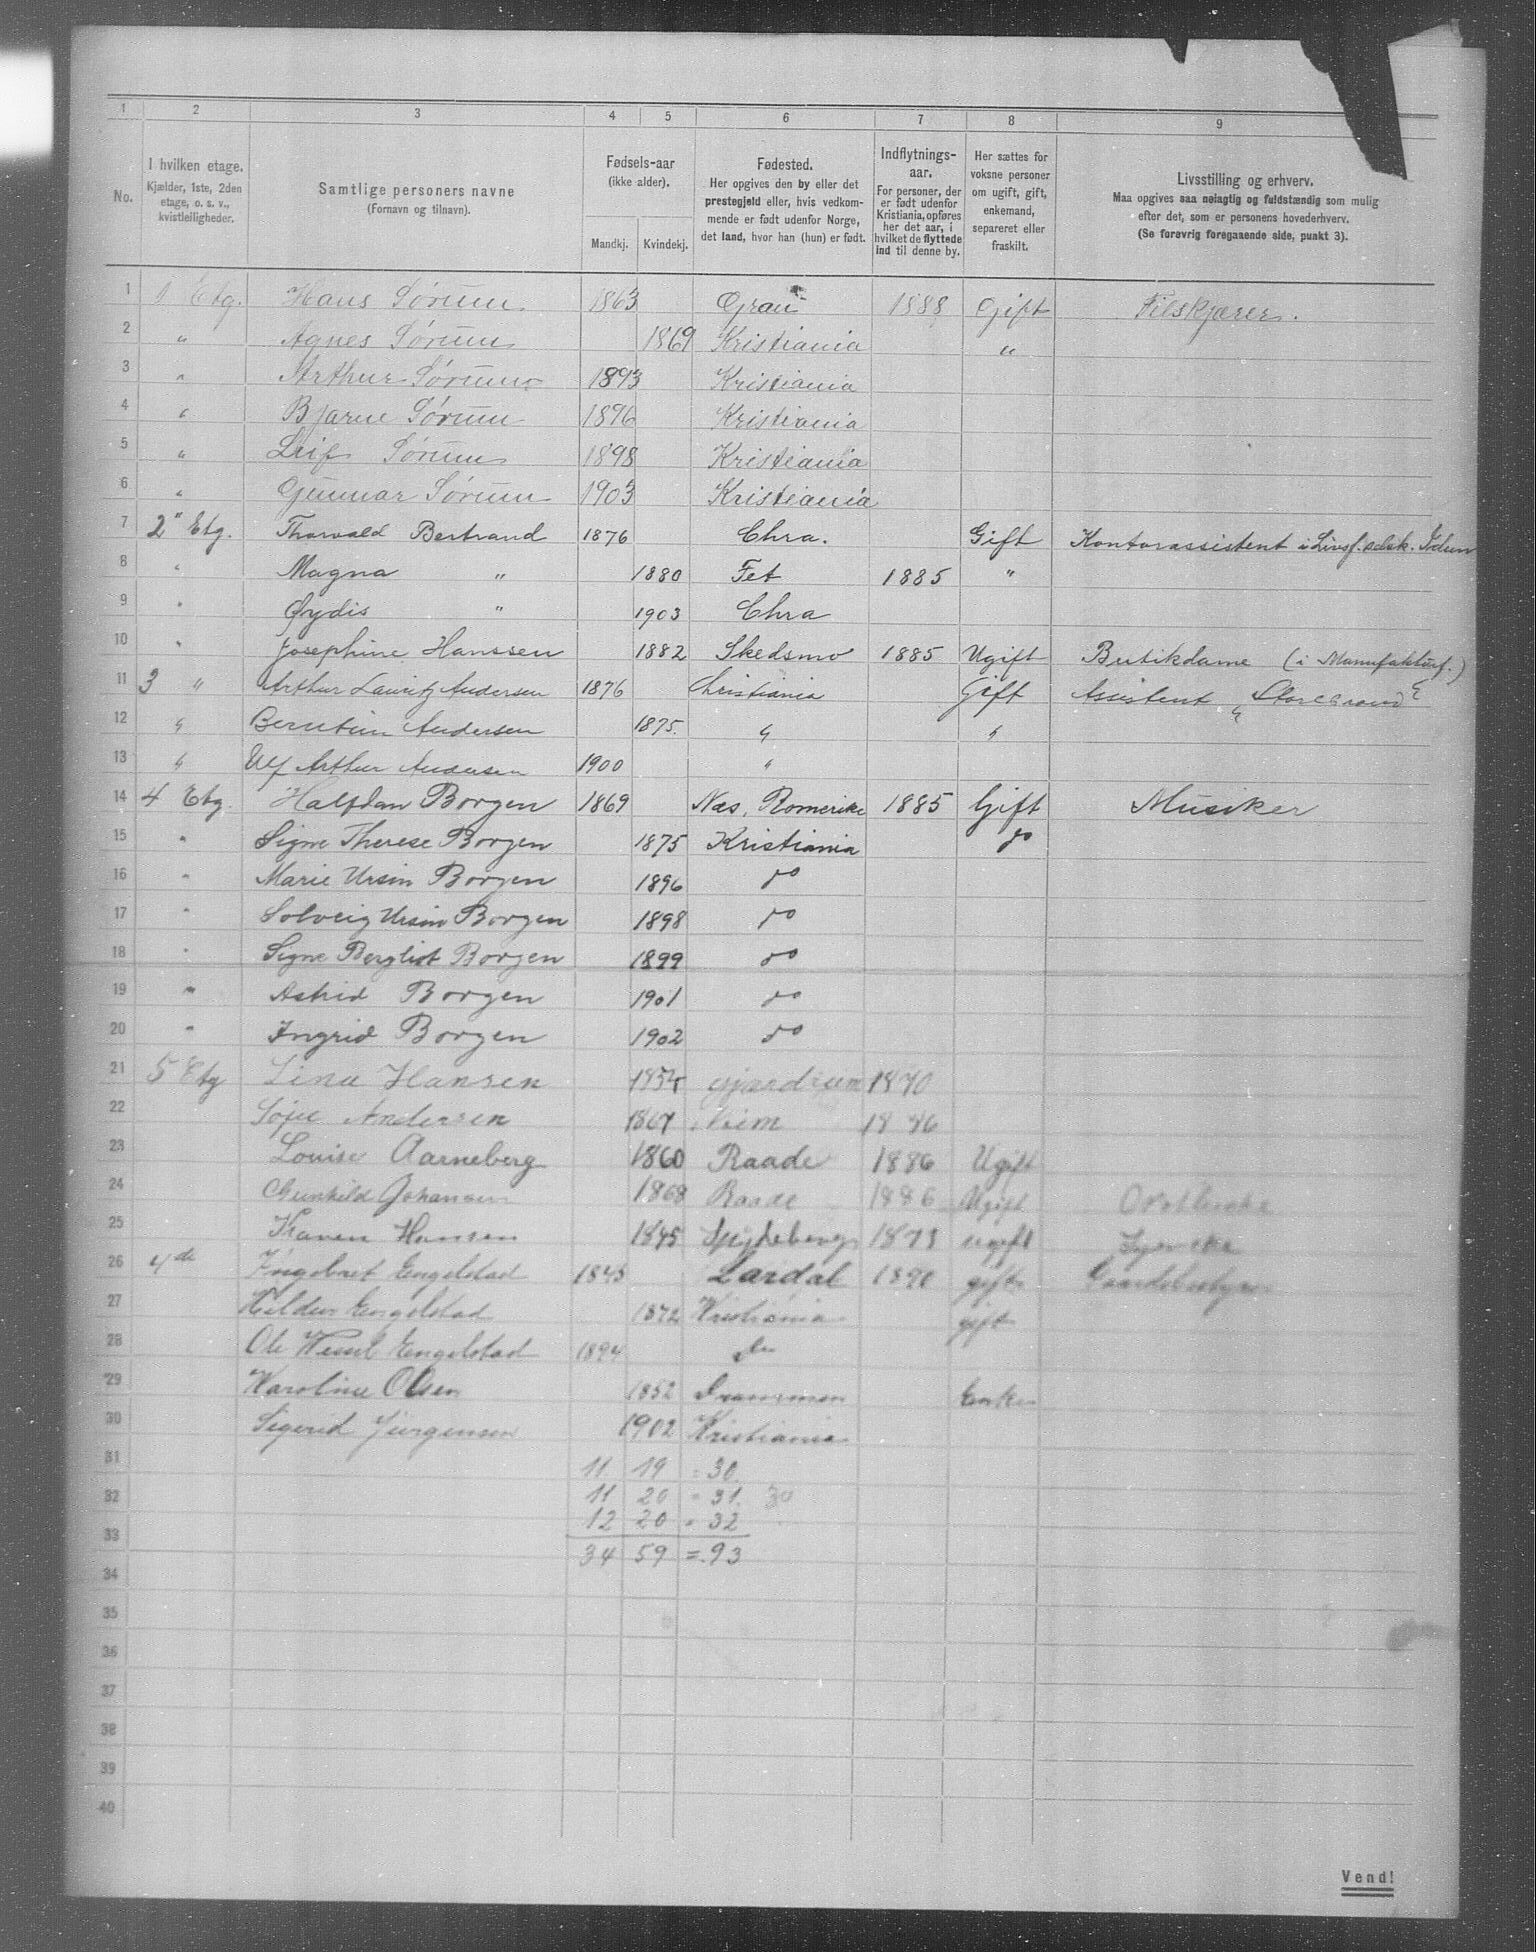 1 2 3 4 5 6 7 8 9
No.
I hvilken etage.
Kjælder, 1ste, 2den
etage, o. s. v.,
kvistleiligheder.
Samtlige personers navne
(Fornavn og tilnavn).
Fødsels-aar
(ikke alder).
Mandkj. Kvindekj.
Fødested.
Her opgives den by eller det
prestegjeld eller, hvis vedkom-
mende er født udenfor Norge,
det land, hvor han (hun) er født.
Indflytnings-
aar.
For personer, der
er født udenfor
Kristiania, opføres
her det aar, i
hvilket de flyttede
ind til denne by.
Her sættes for
voksne personer
om ugift, gift,
enkemand,
separeret eller
fraskilt.
Livsstilling og erhverv.
Maa opgives saa nøiagtig og fuldstændig som mulig
efter det, som er personens hovederhverv.
(Se forøvrig foregaaende side, punkt 3).
1 1 Etg. Hans Sørum 1863 Gran 1888 Gift Filskjærer.
2 " Agnes Sørum 1869 Kristiania "
3 " Arthur Sørum 1893 Kristiania
4 " Bjarne Sørum 1896 Kristiania
5 " Leif Sørum 1898 Kristiania
6 " Gunnar Sørum 1903 Kristiania
7 2" Etg. Thorvald Bertrand 1876 Chra. Gift Kontorassistent i Livsf.selsk. Idun
8 " Magna " 1880 Fet 1885 "
9 " Øydis " 1903 Chra
10 " Josephine Hanssen 1882 Skedsmo 1885 Ugift Butikdame (i Manufakturf.)
11 3 " Arthur Lauritz Andersen 1876 Christiania Gift Assistent " Storebrand "
12 " Berntine Andersen 1875. " "
13 " Ulf Arthur Andersen 1900 "
14 4 Etg. Halfdan Borgen 1869 Næs, Romerike 1885 Gift Musiker
15 " Signe Therese Borgen 1875 Kristiania do
16 " Marie Ursin Borgen 1896 do
17 " Solveig Ursin Borgen 1898 do
18 " Signe Bergliot Borgen 1899 do
19 " Astrid Borgen 1901 do
20 " Ingrid Borgen 1902 do
21 5 Etg Lina Hansen Gjærdrum 1870
22 Sofie Andersen 1867
23 Louise Aarneberg 1860 Raade 1886 Ugift
24 Gunhild Johansen 1868 Raade 1886 Ugift
25 Karen Hansen 1845 Spydeberg 1875 ugift Syerske
26 4de Ingebret Engelstad 1845 Lardal 1890 gift Gaardsbestyrer
27 Engelstad 1872 Kristiania gift
28 Ole Wessel Engelstad 1894 do
29 Karoline Olsen 1852 Drammen Enke
30 Sigrid Jørgensen 1902 Kristiania
31 11 19 = 30
32 11 20 = 31. 30
12 20 = 32
33
34 59 = 93
34
35
36
37
38
39
40
Vend!